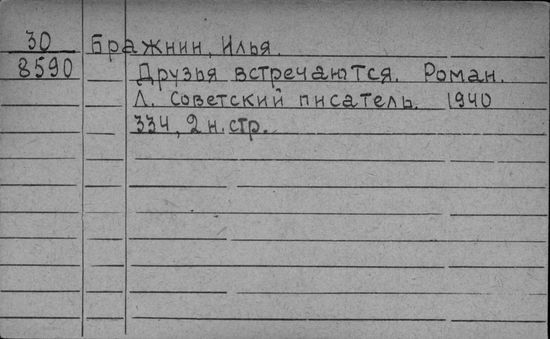 30 Бражнин, Илья.
8590 Друзья встречаются. Роман.
Л. Советский писатель. 1940
334, 2 н. стр.